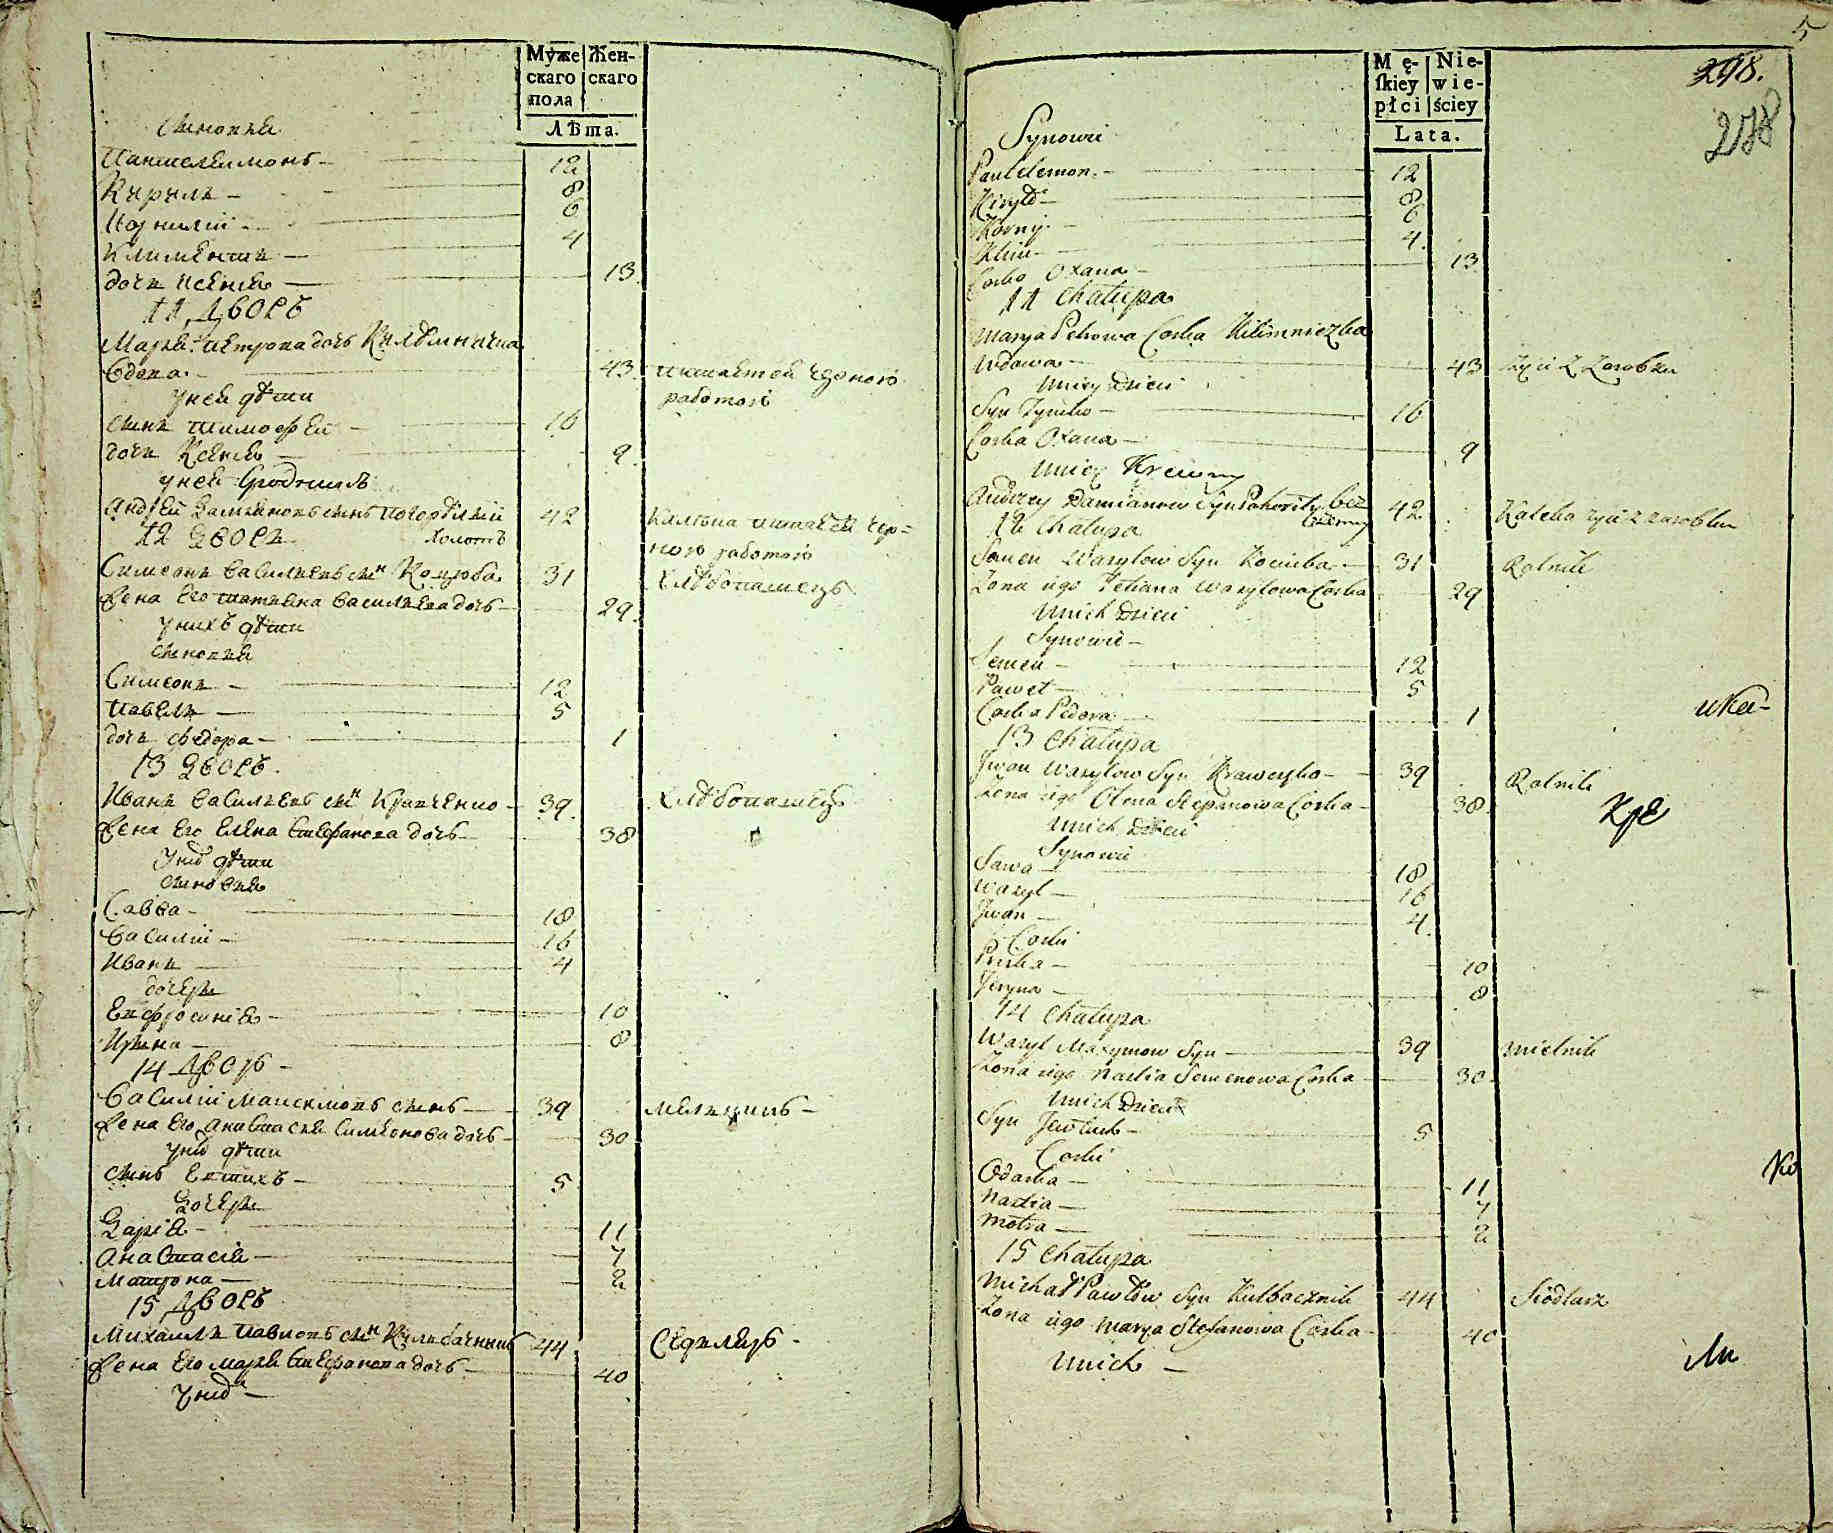 Муже
скаго
пола
Жен-
скаго
Лѣта.
сыновья
Пантелеимонъ 12
Кирилъ 8
Корнилій 6
Климентъ 4
дочь Ксенія 13
11 дворъ
Марья Петрова дочь Килѣмничка
вдова 43 питается черною
работою
у ней дѣти
сынъ Тимофей 16
дочь Ксенія 9
у ней сродникъ
Андрей Дамьяновъ сынъ Погорѣлый 42 калѣка питается чер-
холостъ ною работою
12 дворъ
Симеонъ Васильевъ сынъ Коцюба 31 хлѣбопашецъ
жена его Татьяна Васильева дочь 29
у нихъ дѣти
сыновья
Симеонъ 12
Павелъ 5
дочь Федора 1
13 дворъ
Иванъ Васильевъ сынъ Кравченко 39 хлѣбопашецъ
жена его Елена Стефанова дочь 38
у них дѣти
сыновья
Савва 18
Василій 16
Иванъ 4
дочери
Евфросинія 10
Ирина 8
14 дворъ
Василій Максимовъ сынъ 39 мельникъ
жена его Анастасия Симеонова дочь 30
у них дѣти
сынъ Евтихъ 5
дочери
Дарія 11
Анастасія 7
Матрона 2
15 дворъ
Михаилъ Павловъ сынъ Кульбачникъ 44 седелецъ
жена его Марья Стефанова дочь 40
у них
5
Mę-
skiey
płci
Nie-
wie-
ściey
Lata.
298.
278
Synowie
Pantelemon 12
Kiryło 8
Korniy 6
Klim 4
Corka Oxana 13
11 Chałupa
Marya Petrowa Corka Kilimniczka
Wdowa 43 żyie z zarobku
U niey Dzieci
Syn Tymko 16
Corka Oxana 9
U niey Krewny
Andrzey Damianow Syn Pohoriły bez
żenny 42 Kaleka żyie z zarobku
12 Chałupa
Semen Wasylow Syn Kociuba 31 Rolnik
Żona iego Tetiana Wasylowa Corka 29
U nich Dzieci
Synowie
Semen 12
Paweł 5
Corka Fedora 1
13 Chałupa
Jwan Wasylow Syn Krawczenko 39 Rolnik
Żona iego Olena Stepanowa Corka 38
U nich Dzieci
Synowie
Sawa 18
Wasyl 16
Jwan 4
Corki
Pruska 10
Jeryna 8
14 Chałupa
Wasyl Maxymow Syn 39 Mielnik
Żona iego Nastia Semenowa Corka 30
U nich Dzieci
Syn Jewtuch 5
Corki
Odarka 11
Nastia 7
Motra 2
15 Chałupa
Michał Pawłow Syn Kulbacznik 44 Siodlarz
Żona iego Marya Stefanowa Corka 40
U nich